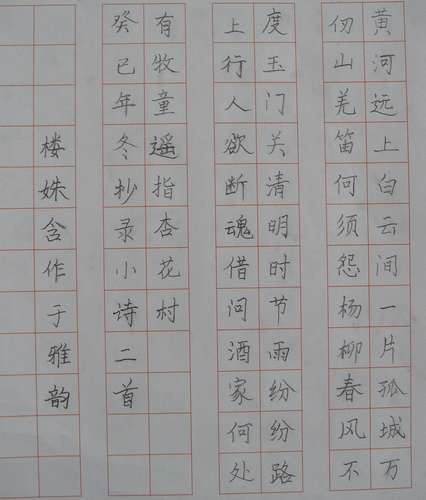 黄河远上白云间一片孤城万
仞山羌笛何须怨杨柳春风不
度玉门关清明时节雨纷纷路
上行人欲断魂借问酒家何处
有牧童遥指杏花村
癸已年冬抄录小诗二首
楼姝含作于雅韵